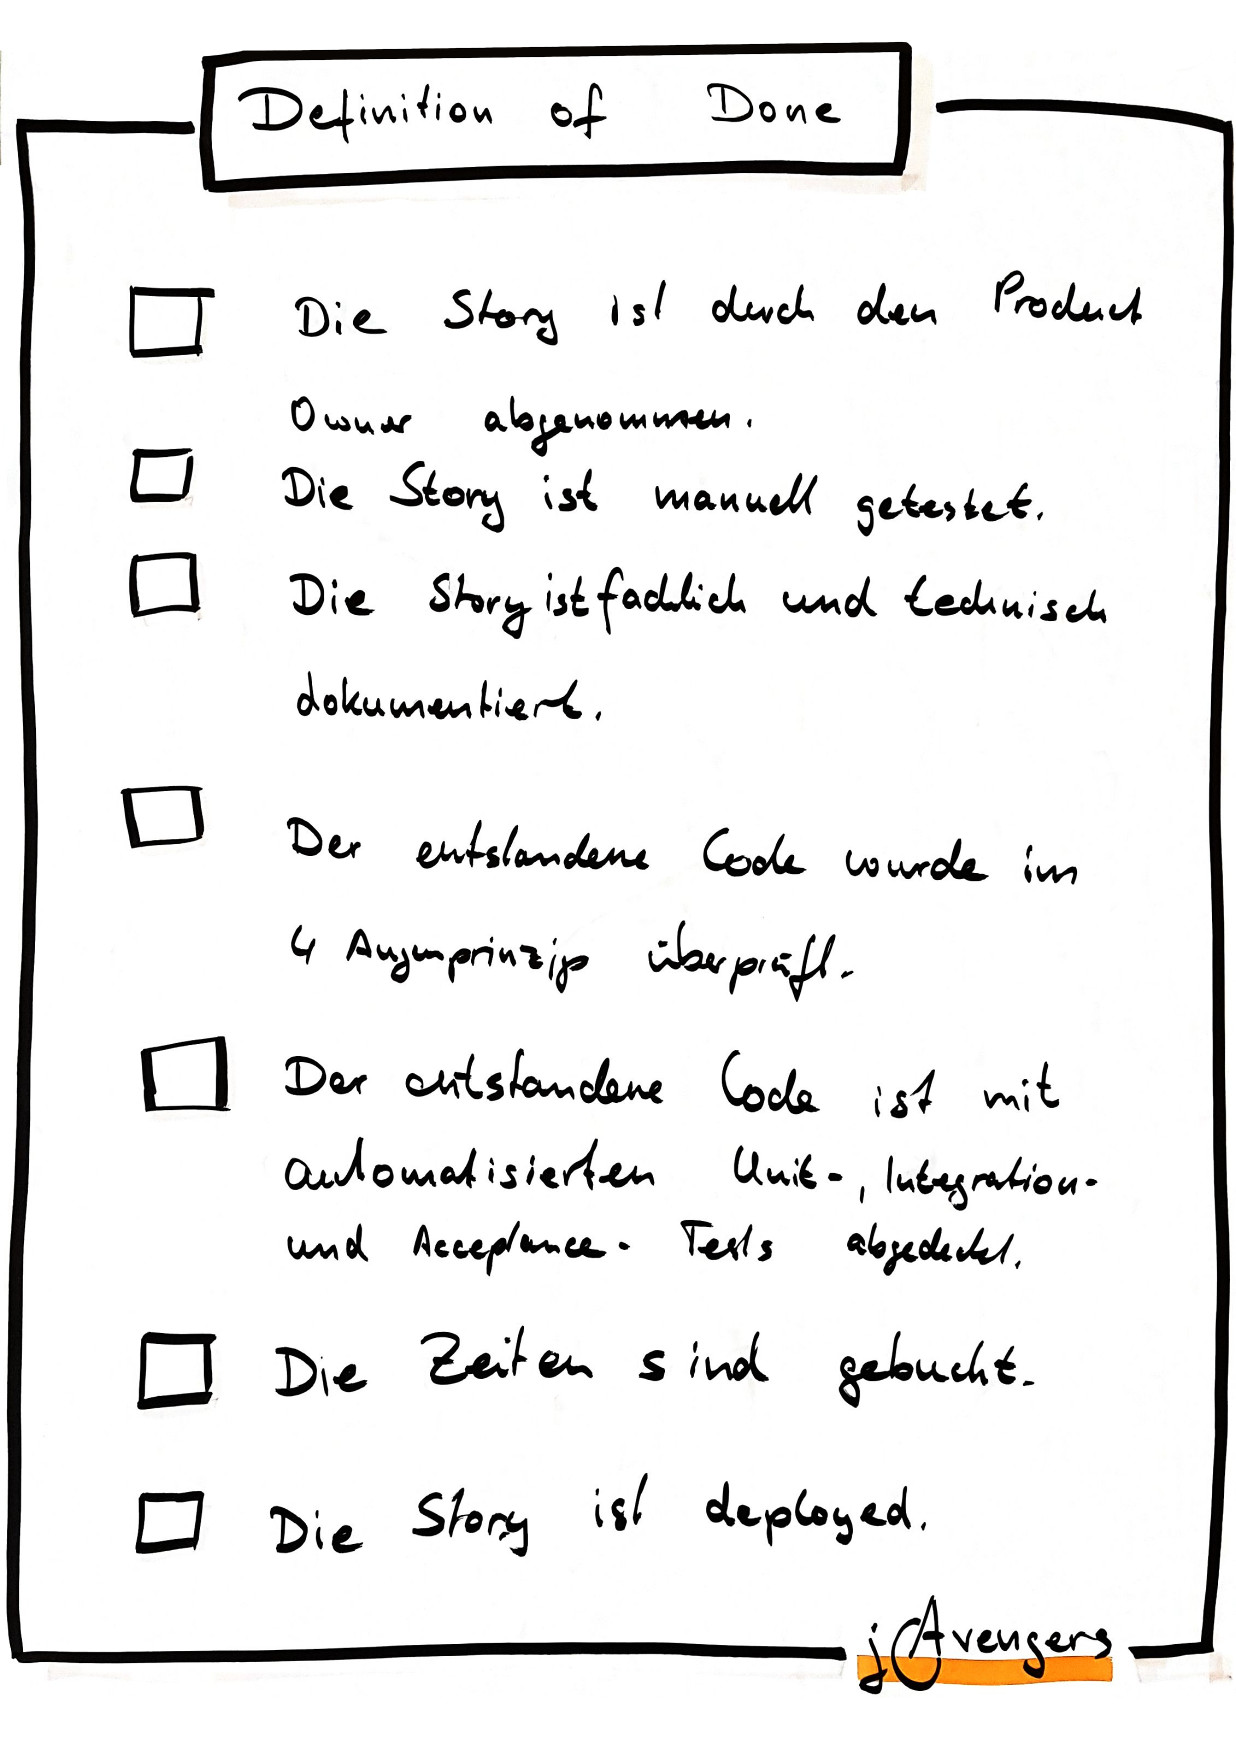 Definition of Done
Die Story ist durch den Product
Owner abgenommen.
Die Story ist manuell getestet.
Die Story ist fachlich und technisch
dokumentiert.
Der entstandene Code wurde im
4 Augenprinzip überprüft.
Der entstandene Code ist mit
automatisierten Unit-, Integration-
und Acceptance- Tests abgedeckt.
Die Zeiten sind gebucht.
Die Story ist deployed.
jAvengers